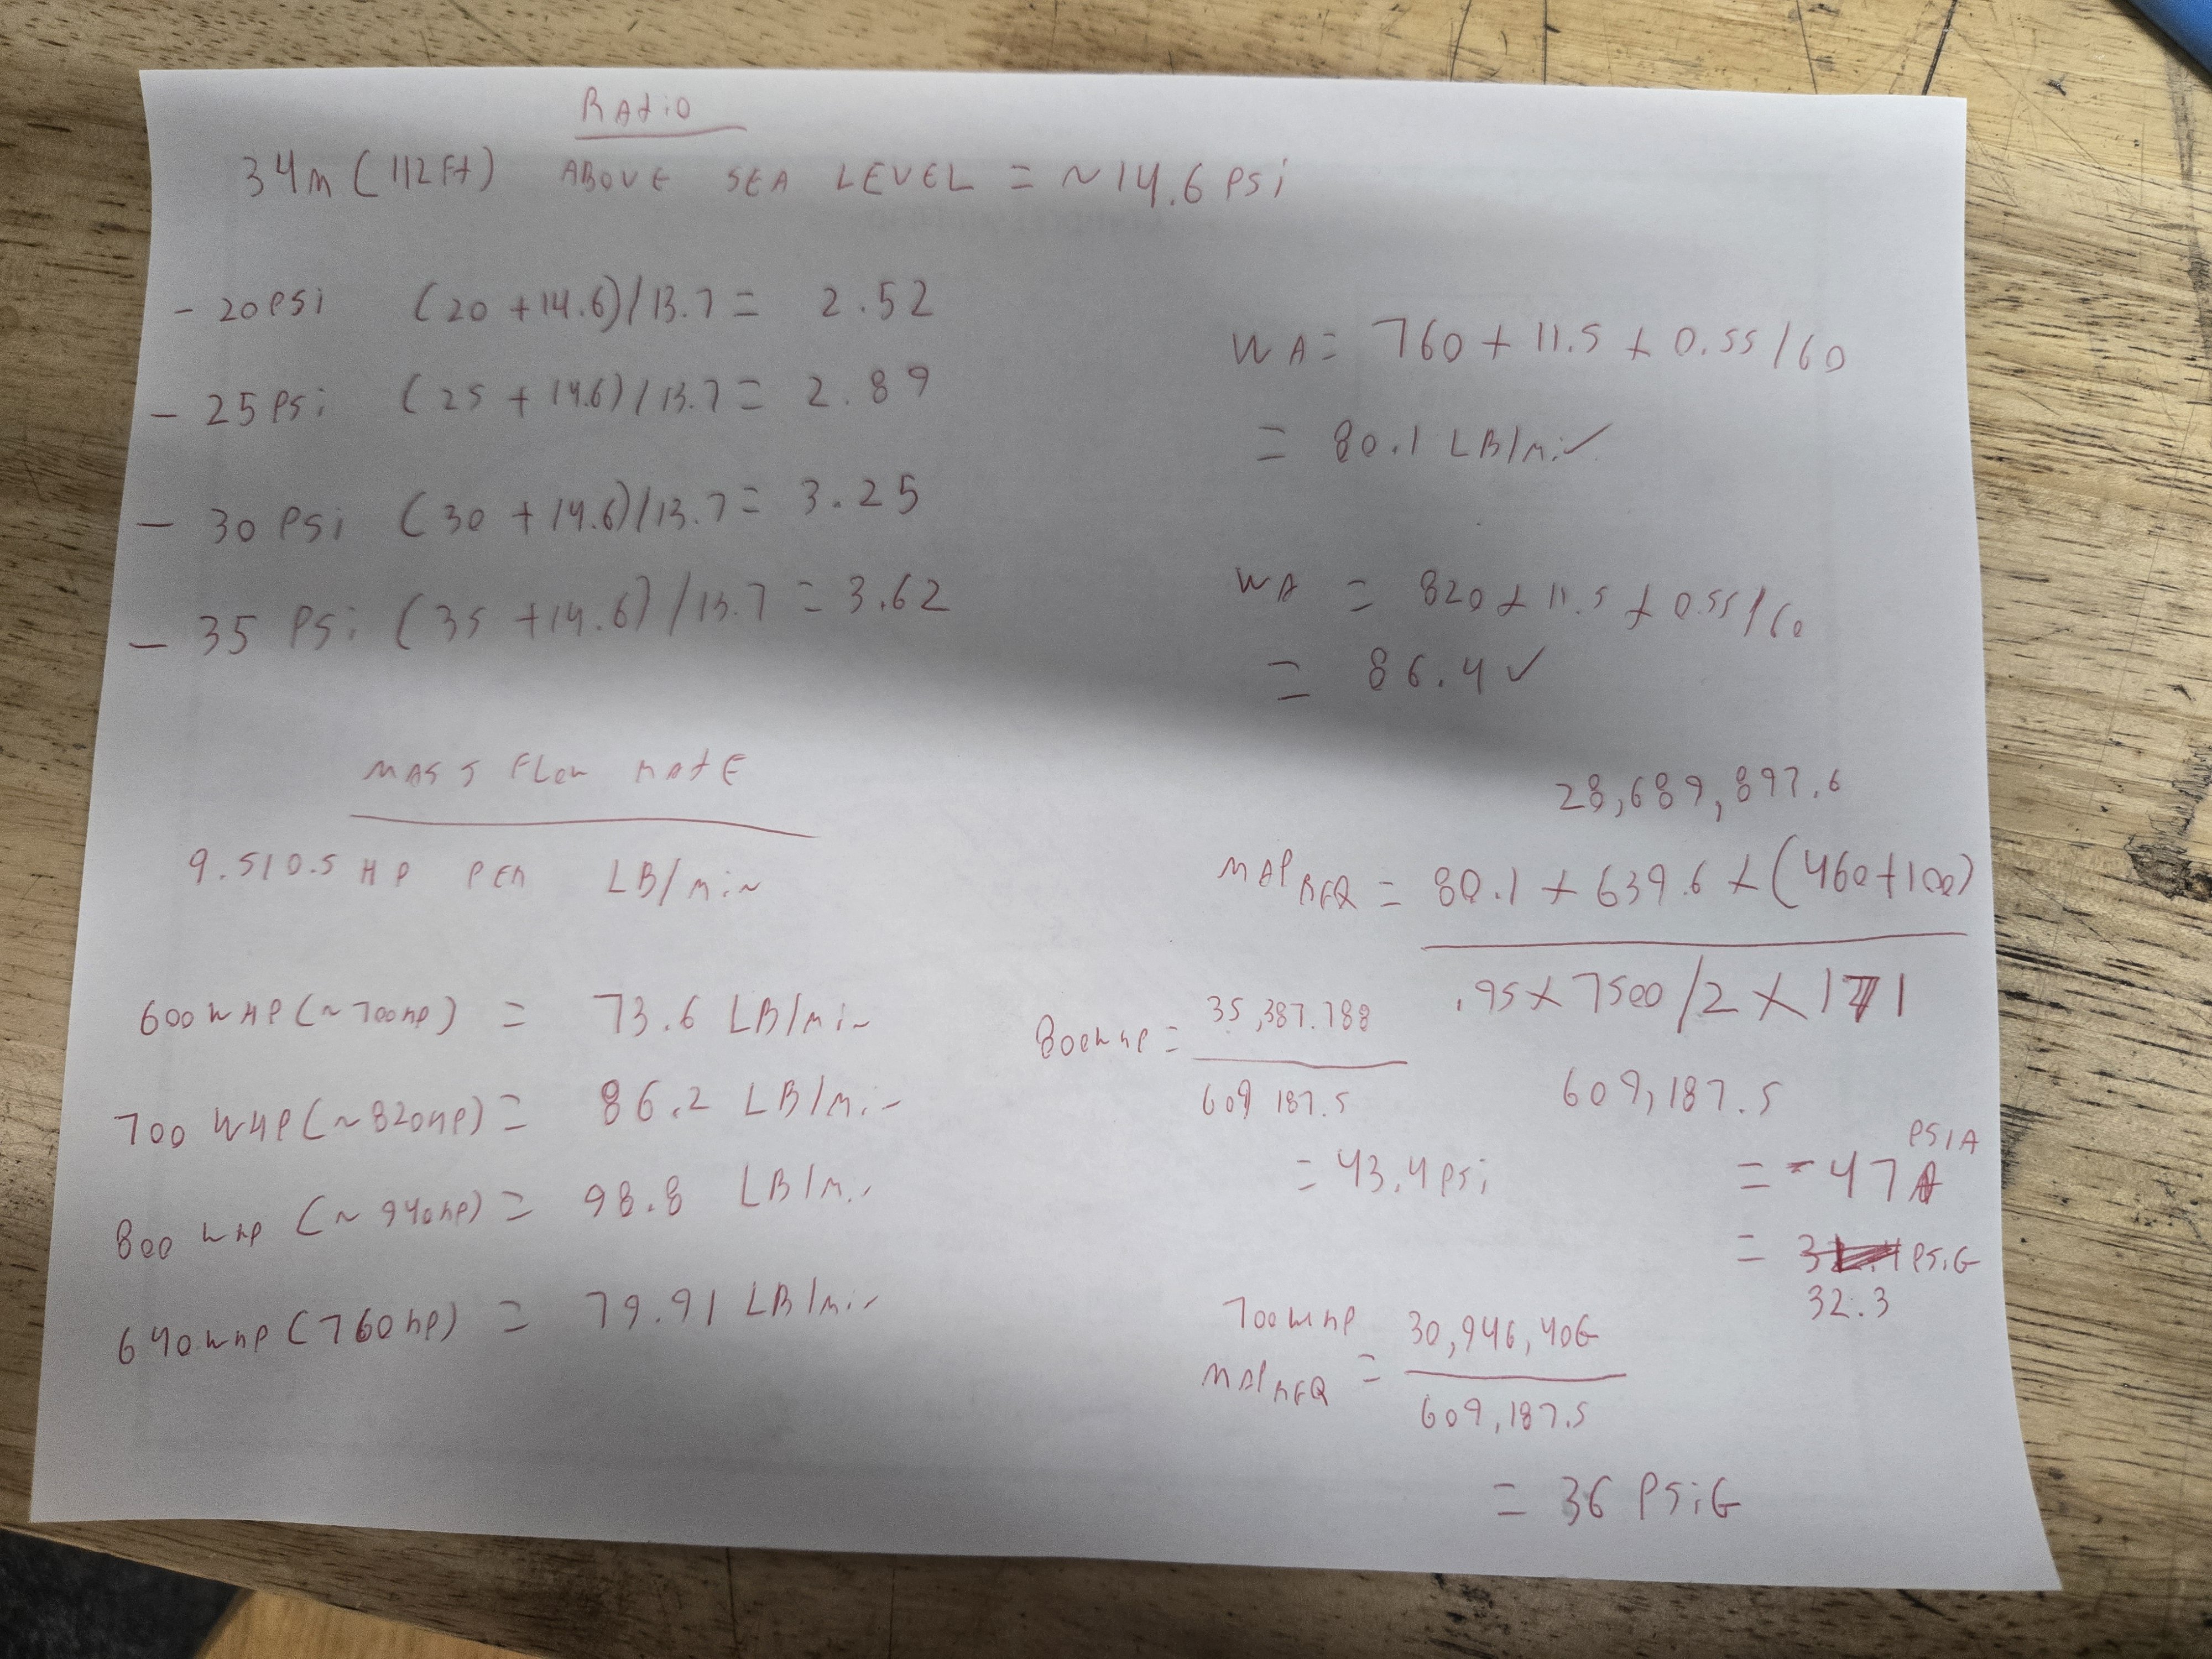 RAtio
34m (112Ft) ABOVE SEA LEVEL = ~14.6 PSi
- 20PSi (20 +14.6)/13.7 = 2.52
- 25 PSi (25 + 14.6)/13.7 = 2.89
- 30 PSi (30 +14.6)/13.7 = 3.25
- 35 PSi (35 +14.6)/13.7 = 3.62
MASS FLOW RATE
9.510.5 HP PER LB/min
600WHP (~700HP) = 73.6 LB/min
700 WHP (~820HP) = 86.2 LB/min
800 WHP (~940HP) = 98.8 LB/min
640WHP (760HP) = 79.91 LB/min
WA = 760 × 11.5 × 0.55/60
= 80.1 LB/min ✓
WA = 820 × 11.5 × 0.55/60
= 86.4 ✓
28,689,897.6
MAP REQ = 80.1 × 639.6 × (460+100)
.95 × 7500/2 × 171
609,187.5
= ~47 PSIA
= PSiG
32.3
800WHP = 35,387.788
609 187.5
= 43.4 PSi
700WHP
MAP REQ = 30,946,406
609,187.5
= 36 PSiG